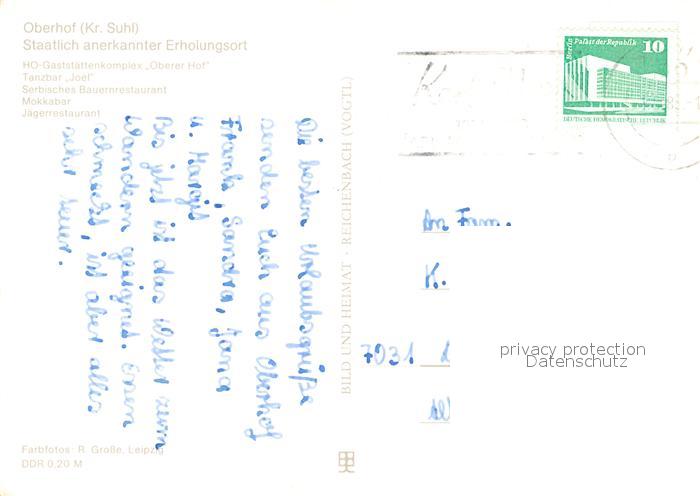 Oberhof (Kr. Suhl)
Staatlich anerkannter Erholungsort
HO-Gaststättenkomplex „Oberer Hof"
Tanzbar „Joel"
Serbisches Bauernrestaurant
Mokkabar
Jägerrestaurant
Die besten Urlaubsgrüße
senden Euch aus Oberhof
Frank, Sandra, Jana
u. Margit
Bis jetzt ist das Wetter zum
Wandern geeignet. Essen
schmeckt, ist aber alles
sehr teuer.
Farbfotos: R. Große, Leipzig
DDR 0,20 M
BILD UND HEIMAT · REICHENBACH (VOGTL)
Berlin Palast der Republik
10
DEUTSCHE DEMOKRATISCHE REPUBLIK
An Fam.
K.
7031
privacy protection
Datenschutz